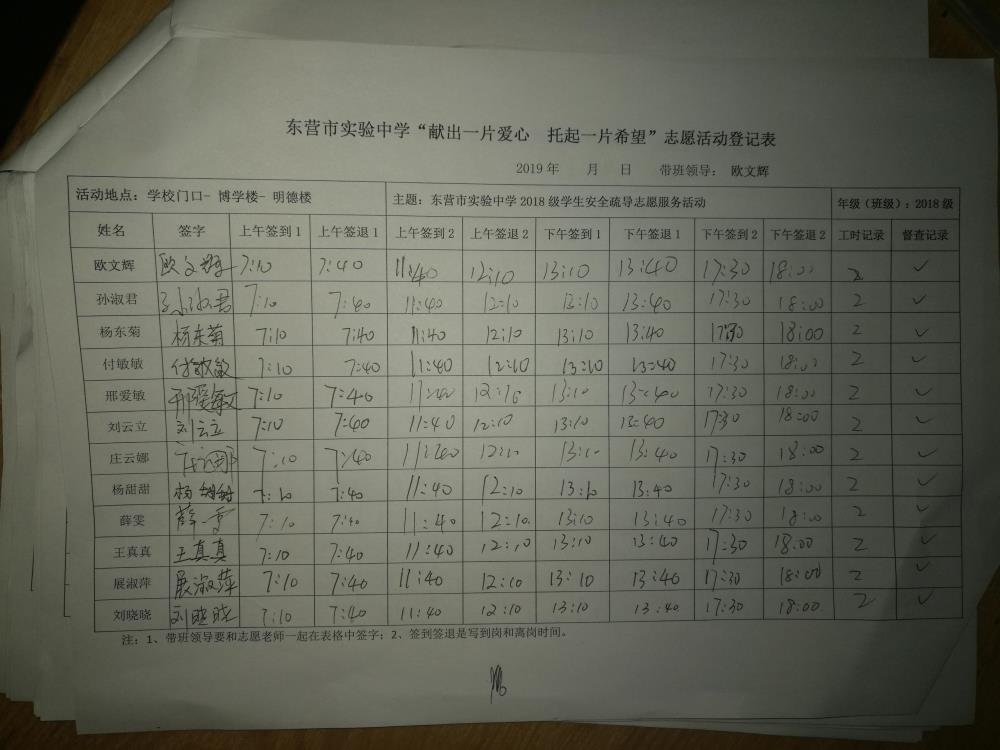 东营市实验中学“献出一片爱心 托起一片希望”志愿活动登记表
2019年 月 日 带班领导： 欧文辉
活动地点：学校门口- 博学楼- 明德楼 主题：东营市实验中学2018级学生安全疏导志愿服务活动 年级（班级）：2018级
姓名 签字 上午签到1 上午签退1 上午签到2 上午签退2 下午签到1 下午签退1 下午签到2 下午签退2 工时记录 督查记录
欧文辉 欧文辉 7:10 7:40 11:40 12:10 13:10 13:40 17:30 18:00 2 ✓
孙淑君 孙淑君 7:10 7:40 11:40 12:10 13:10 13:40 17:30 18:00 2 ✓
杨东菊 杨东菊 7:10 7:40 11:40 12:10 13:10 13:40 17:30 18:00 2 ✓
付敏敏 付敏敏 7:10 7:40 11:40 12:10 13:10 13:40 17:30 18:00 2 ✓
邢爱敏 邢爱敏 7:10 7:40 11:40 12:10 13:10 13:40 17:30 18:00 2 ✓
刘云立 刘云立 7:10 7:40 11:40 12:10 13:10 13:40 17:30 18:00 2 ✓
庄云娜 庄云娜 7:10 7:40 11:40 12:10 13:10 13:40 17:30 18:00 2 ✓
杨甜甜 杨甜甜 7:10 7:40 11:40 12:10 13:10 13:40 17:30 18:00 2 ✓
薛雯 薛雯 7:10 7:40 11:40 12:10 13:10 13:40 17:30 18:00 2 ✓
王真真 王真真 7:10 7:40 11:40 12:10 13:10 13:40 17:30 18:00 2 ✓
展淑萍 展淑萍 7:10 7:40 11:40 12:10 13:10 13:40 17:30 18:00 2 ✓
刘晓晓 刘晓晓 7:10 7:40 11:40 12:10 13:10 13:40 17:30 18:00 2 ✓
注：1、带班领导要和志愿老师一起在表格中签字；2、签到签退是写到岗和离岗时间。